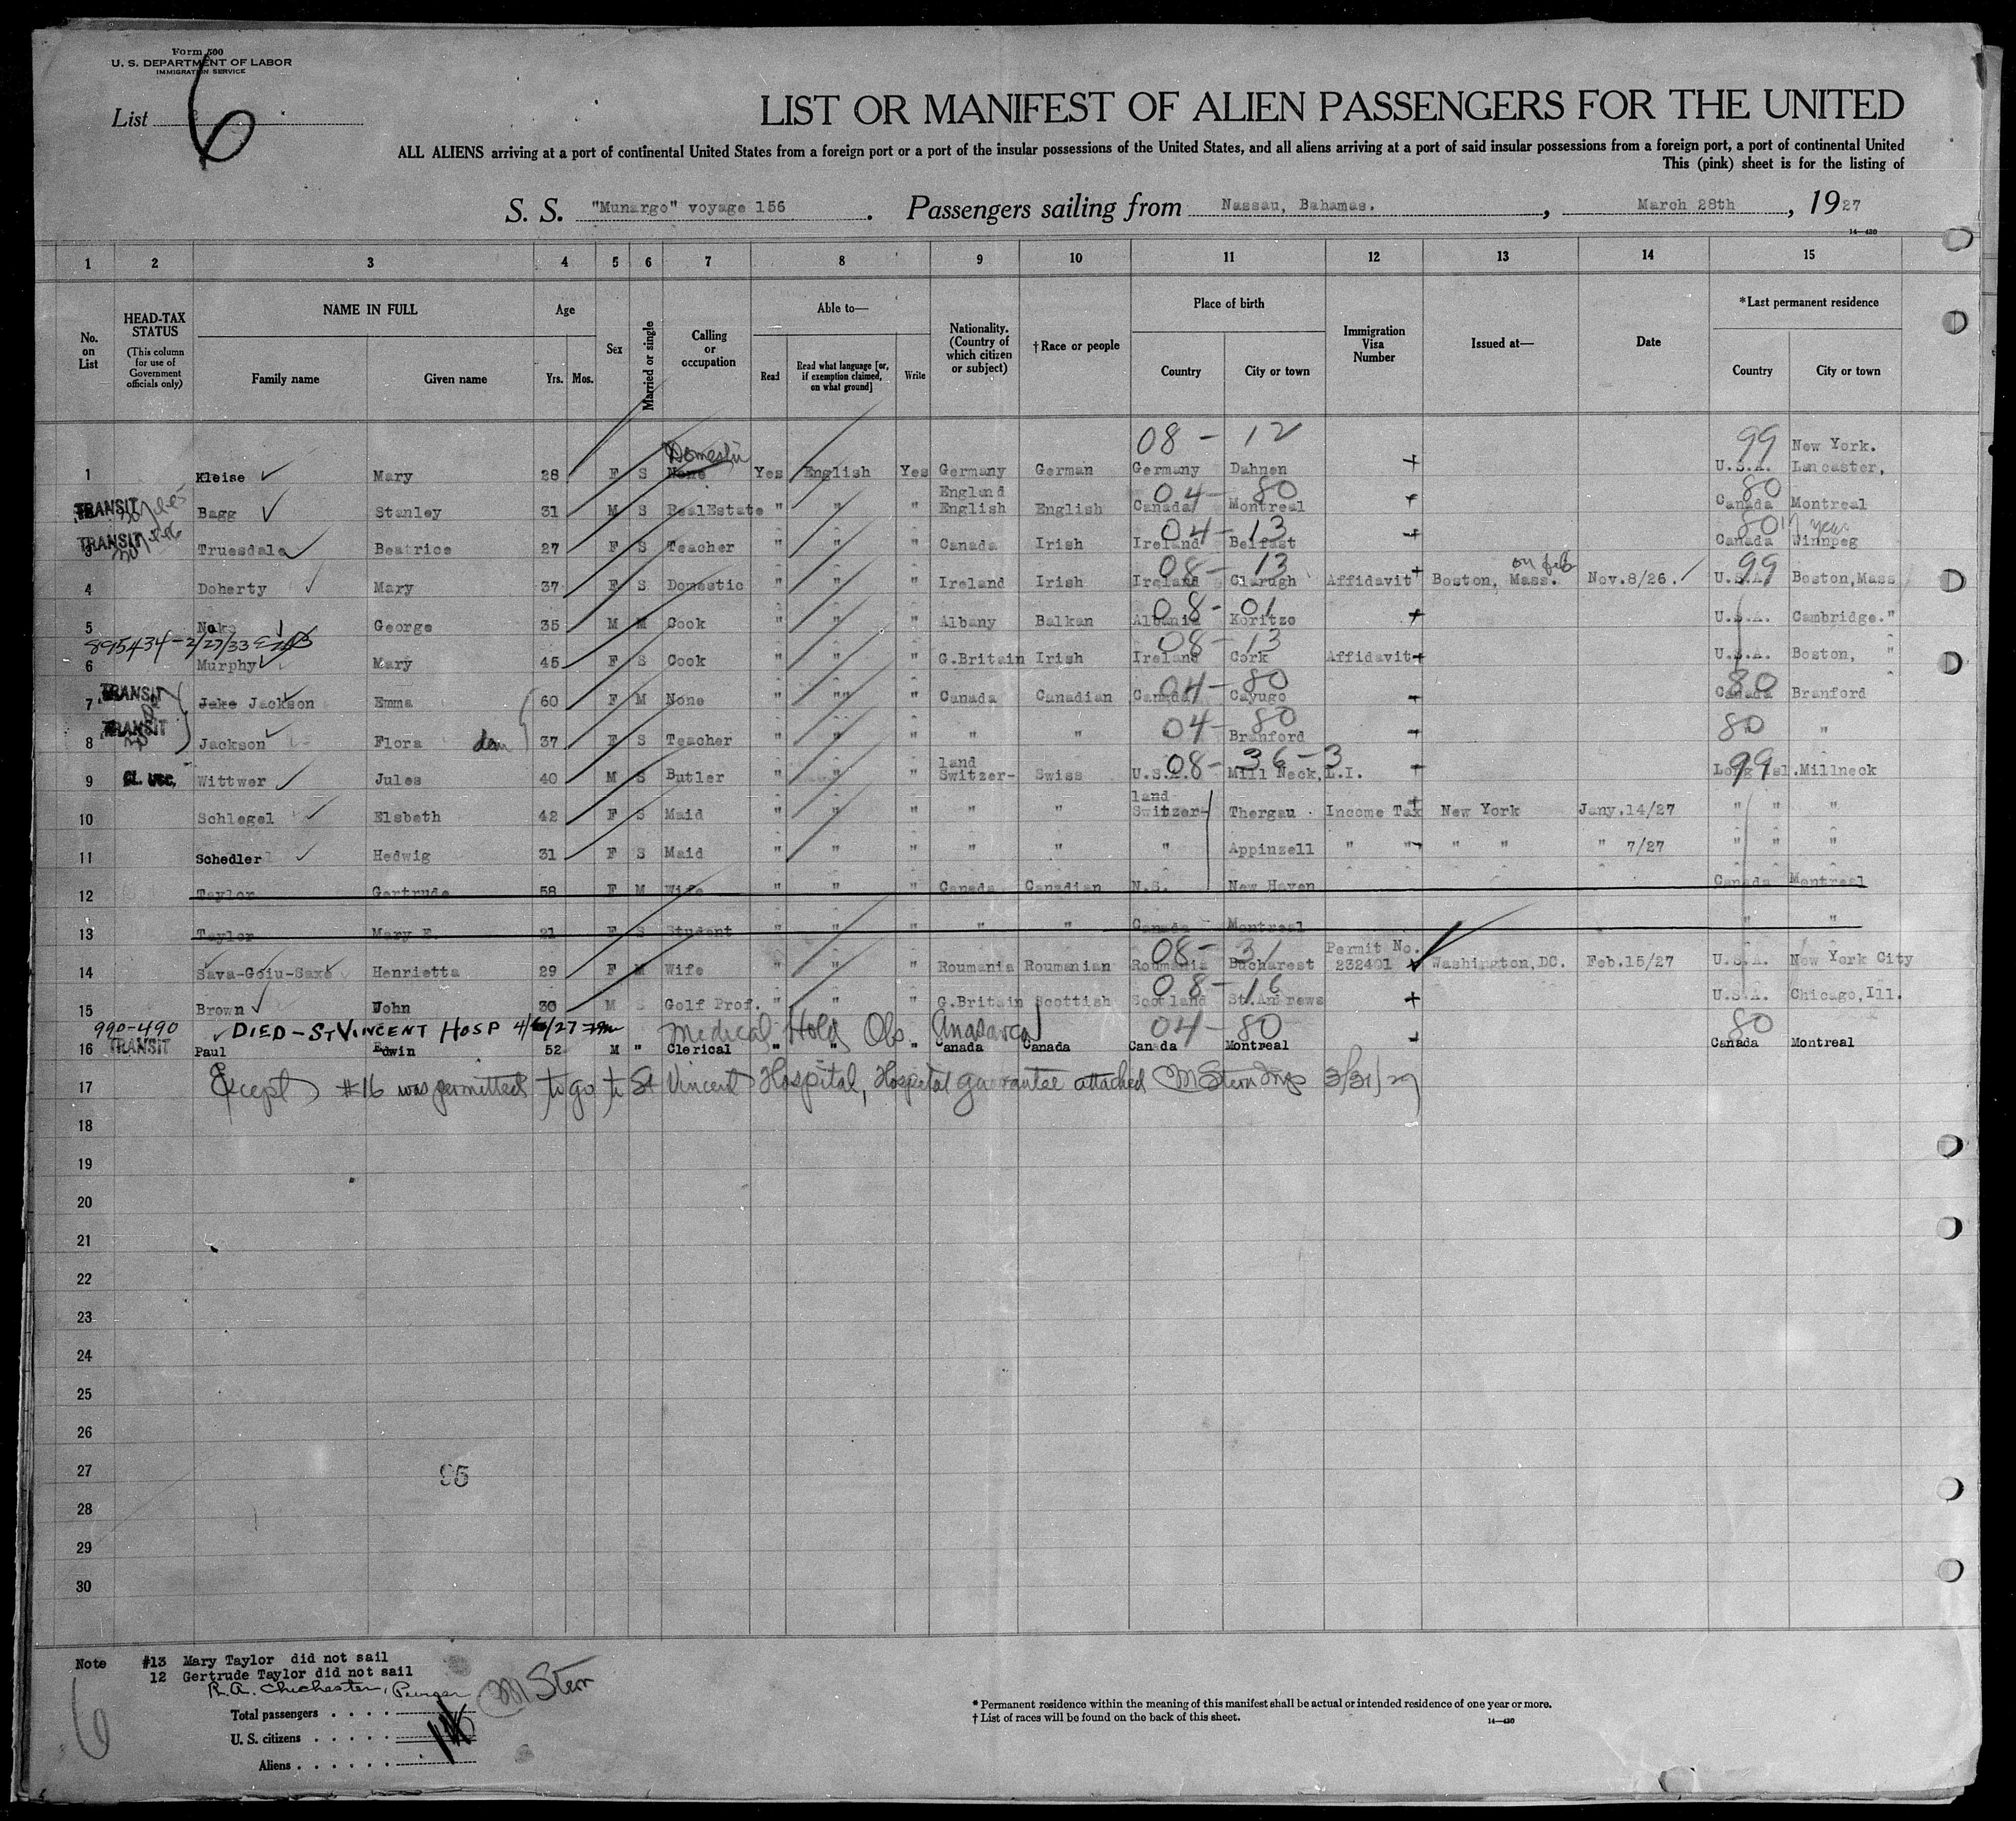 Form 500
U. S. DEPARTMENT OF LABOR
IMMIGRATION SERVICE
List 6
LIST OR MANIFEST OF ALIEN PASSENGERS FOR THE UNITED
ALL ALIENS arriving at a port of continental United States from a foreign port or a port of the insular possessions of the United States, and all aliens arriving at a port of said insular possessions from a foreign port, a port of continental United
This (pink) sheet is for the listing of
S. S. "Munargo" voyage 156. Passengers sailing from Nassau, Bahamas., March 28th, 1927
14—430
1 2 3 4 5 6 7 8 9 10 11 12 13 14 15
No. on List
HEAD-TAX STATUS (This column for use of Government officials only)
NAME IN FULL Family name Given name
Age Yrs. Mos.
Sex
Married or single
Calling or occupation
Able to— Read Read what language [or, if exemption claimed, on what ground] Write
Nationality. (Country of which citizen or subject)
†Race or people
Place of birth Country City or town
Immigration Visa Number
Issued at—
Date
*Last permanent residence Country City or town
08 - 12 99 New York.
Domestic
1 Kleise Mary 28 F S None Yes English Yes Germany German Germany Dahnen U.S.A. Lancaster,
England 04 - 80 80
TRANSIT Bagg Stanley 31 M S RealEstate " " " English English Canada Montreal Canada Montreal
04 - 13 80
TRANSIT 3 Truesdale Beatrice 27 F S Teacher " " " Canada Irish Ireland Belfast Canada Winnpeg
08 - 13 99
4 Doherty Mary 37 F S Domestic " " " Ireland Irish Ireland Clarugh Affidavit Boston, Mass. Nov.8/26. U.S.A. Boston,Mass
08 - 01
5 Nako George 35 M M Cook " " " Albany Balkan Albania Koritzo U.S.A. Cambridge."
895434 - 2/27/33 08 - 13
6 Murphy Mary 45 F S Cook " " " G.Britain Irish Ireland Cork Affidavit U.S.A. Boston, "
TRANSIT 04 - 80 80
7 Jake Jackson Emma 60 F M None " "" " Canada Canadian Canada Cayugo Canada Branford
TRANSIT 04 - 80 80
8 Jackson Flora dau 37 F S Teacher " " " " " Branford "
land 08 - 36 - 3 99
9 Wittwer Jules 40 M S Butler " " " Switzer- Swiss U.S.A. Mill Neck,L.I. Long Isl.Millneck
land
10 Schlegel Elsbeth 42 F S Maid " " " " " Switzer- Thergau Income Tax New York Jany.14/27 " " "
11 Schedler Hedwig 31 F S Maid " " " " " " Appinzell " " " " " 7/27 " " "
12 Taylor Gertrude 58 F M Wife " " " Canada Canadian N.S. New Haven Canada Montreal
13 Taylor Mary E. 21 F S Student " " " " " Canada Montreal " "
08 - 31 Permit No.
14 Sava-Goiu-Saxe Henrietta 29 F M Wife " " " Roumania Roumanian Roumania Bucharest 232401 Washington,DC. Feb.15/27 U.S.A. New York City
08 - 16
15 Brown John 30 M S Golf Prof. " " " G.Britain Scottish Scotland St.Andrews U.S.A. Chicago,Ill.
990-490 DIED - ST VINCENT HOSP 4/6/27 Medical Hold Obs Anasarca 04 - 80 80
16 TRANSIT Paul Edwin 52 M " Clerical " " " Canada Canada Canada Montreal Canada Montreal
17 Except #16 was permitted to go to St Vincent Hospital, Hospital guarantee attached M Stern Insp 3/31/27
18
19
20
21
22
23
24
25
26
27
95
28
29
30
Note #13 Mary Taylor did not sail
12 Gertrude Taylor did not sail
R.A. Chichester, Purser
M Stern
6
Total passengers
U. S. citizens
Aliens
* Permanent residence within the meaning of this manifest shall be actual or intended residence of one year or more.
† List of races will be found on the back of this sheet.
14—430